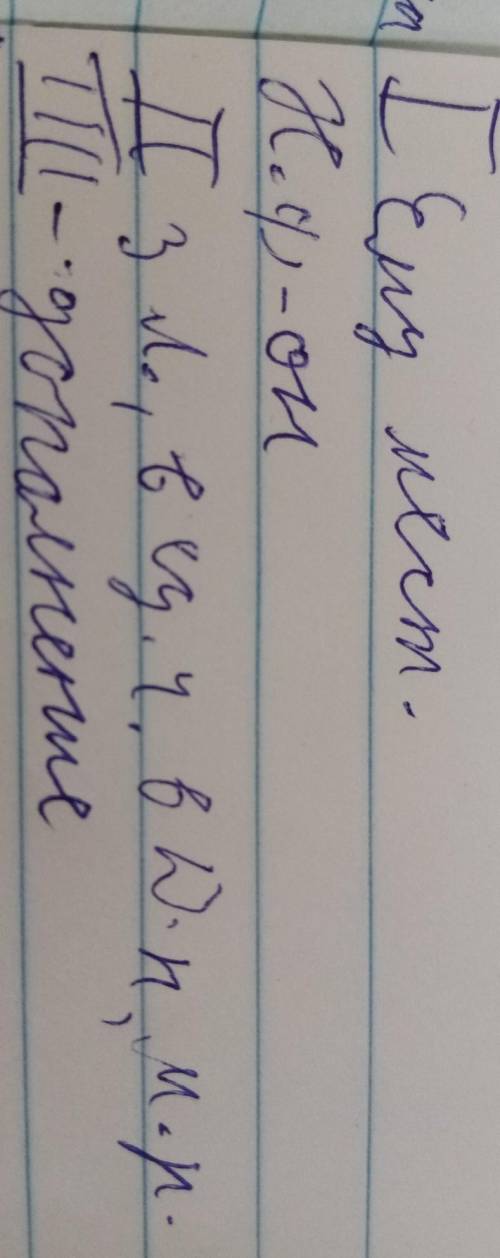 I Ему мест.
Н.ф,-он
II 3 л., в ед. ч, в Д.п, м.р.
III - дополнение